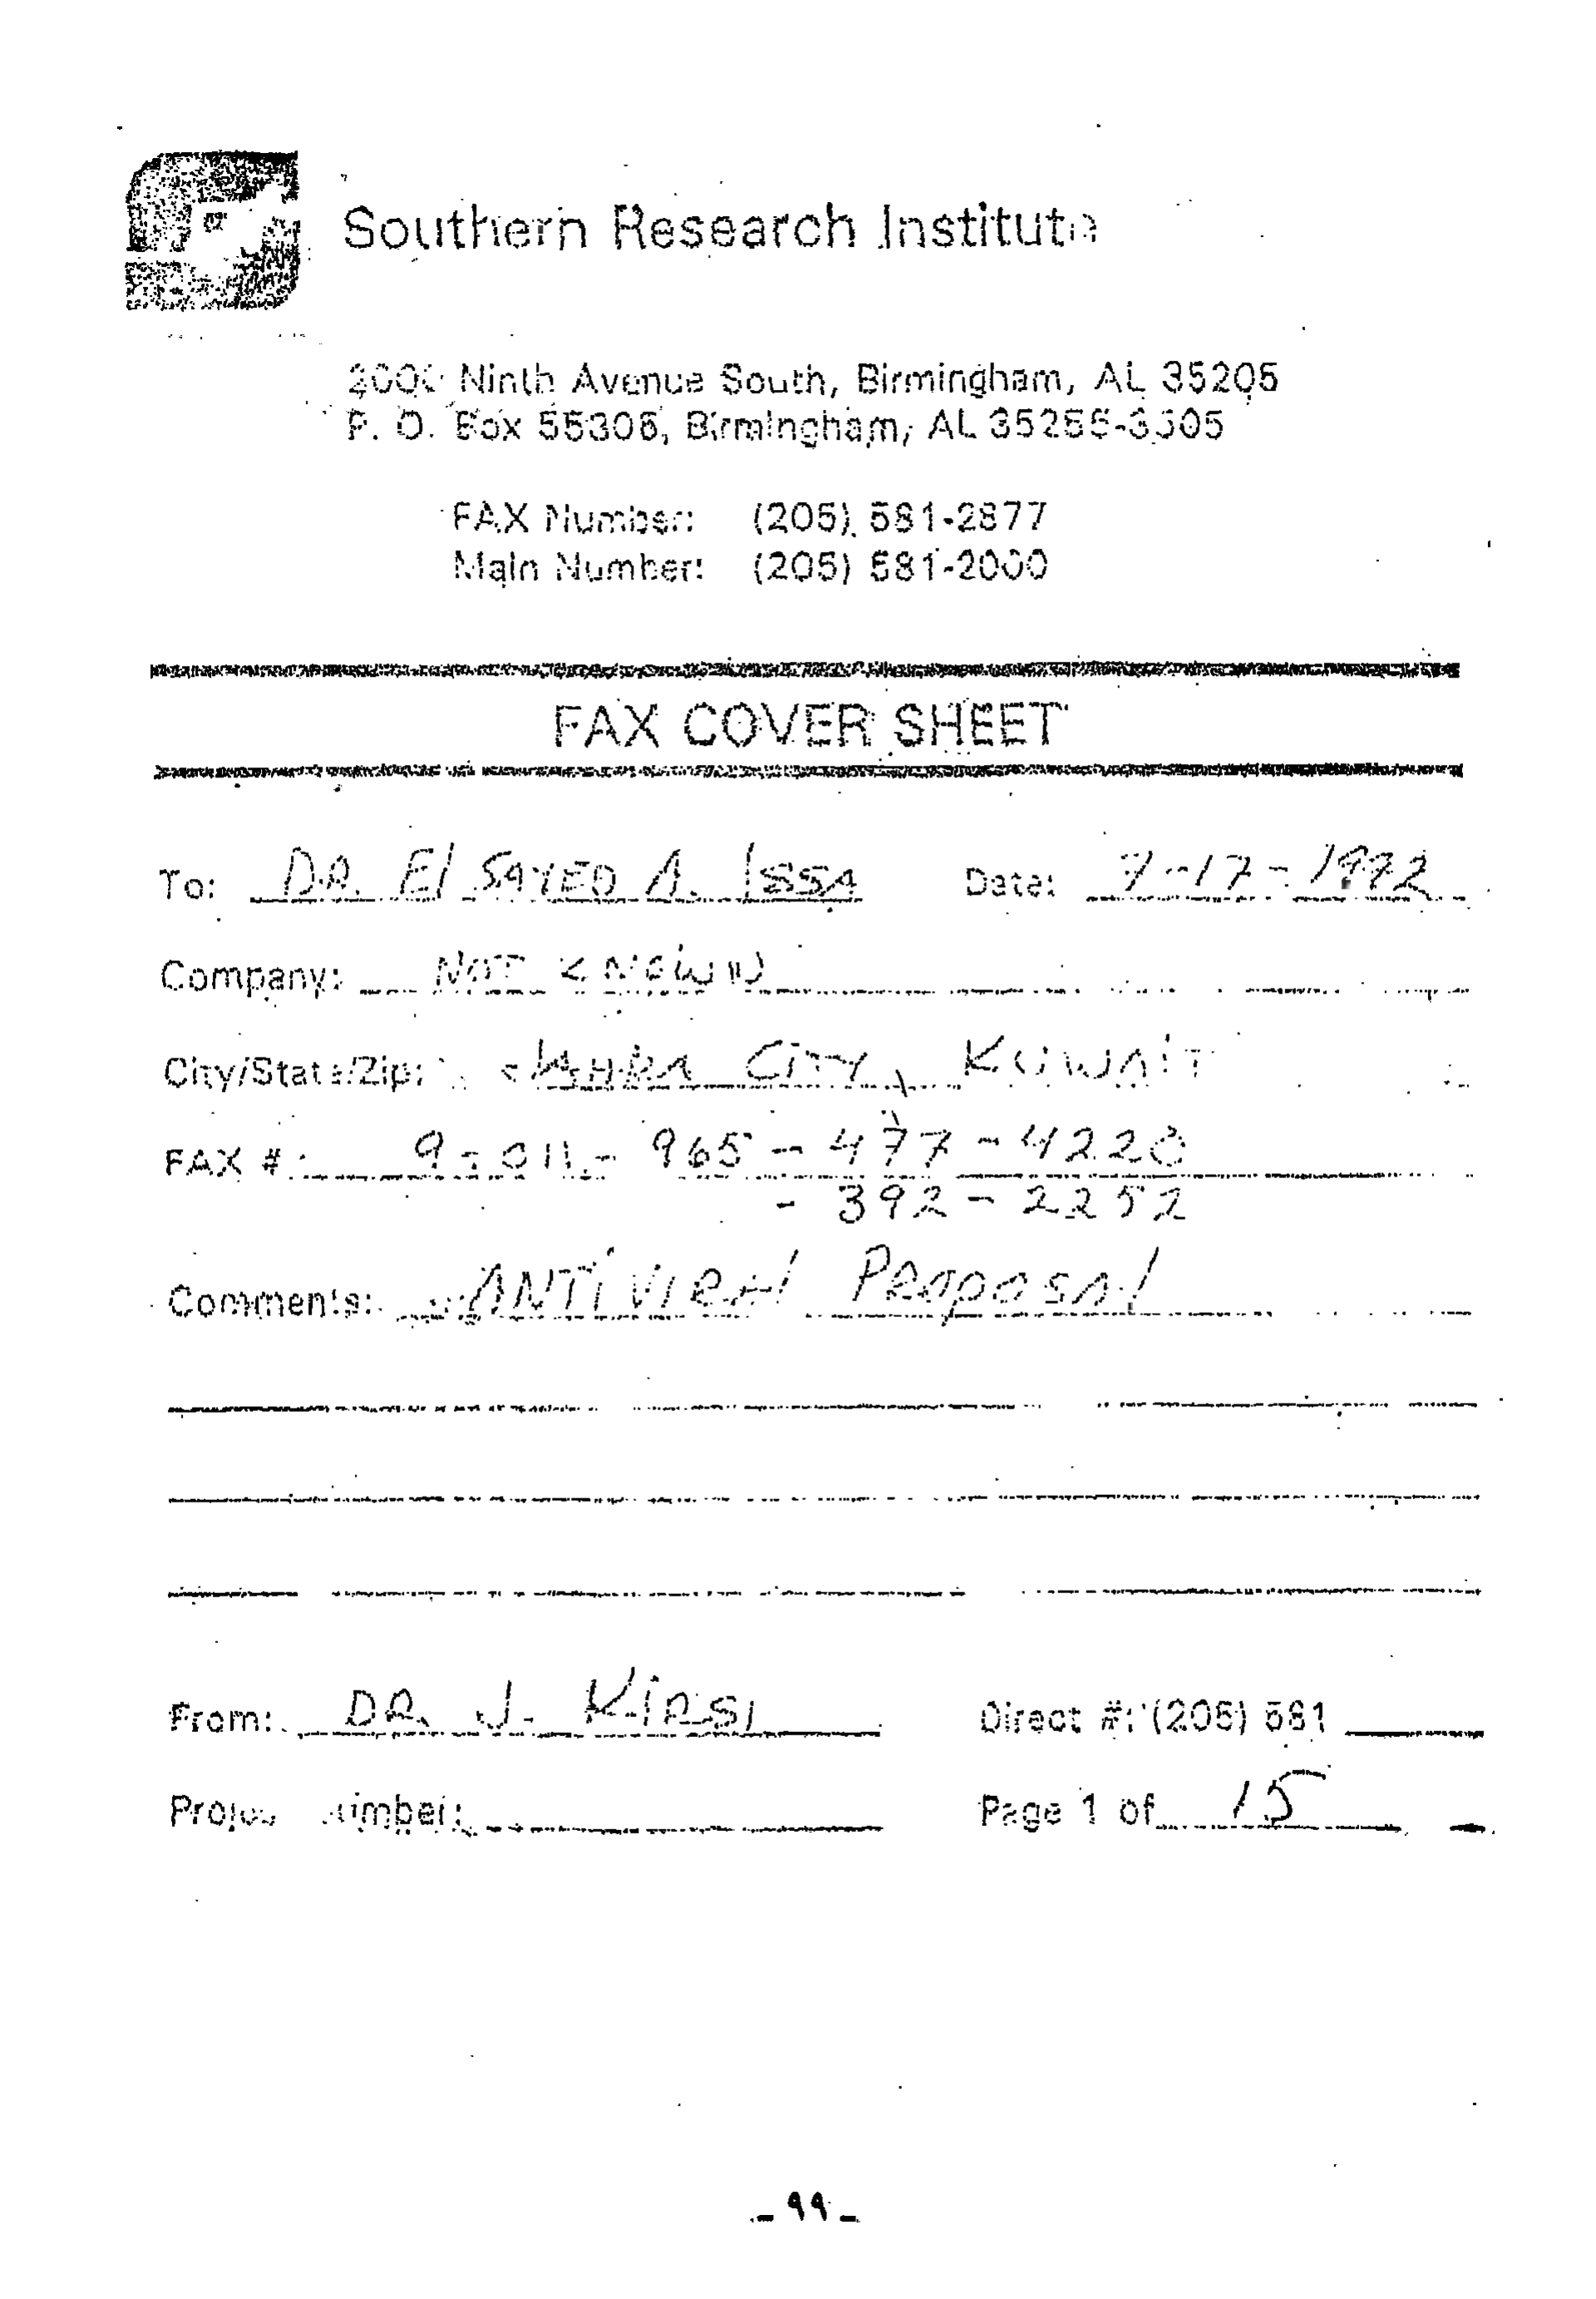 Southern Research Institute
2000 Ninth Avenue South, Birmingham, AL 35205
P. O. Box 55305, Birmingham, AL 35255-5305
FAX Number: (205) 581-2877
Main Number: (205) 581-2000
FAX COVER SHEET
To: DR. El SAYED A. ISSA Date: 7-17-1992
Company: NOT KNOWN
City/State/Zip: JAHRA CITY, KUWAIT
FAX #: 9-011-965-477-4220
- 392-2252
Comments: ANTIVIRAl PROPOSAl
From: DR. J. KIRSI Direct #: (205) 581
Project Number: Page 1 of 15
- ٩٩ -